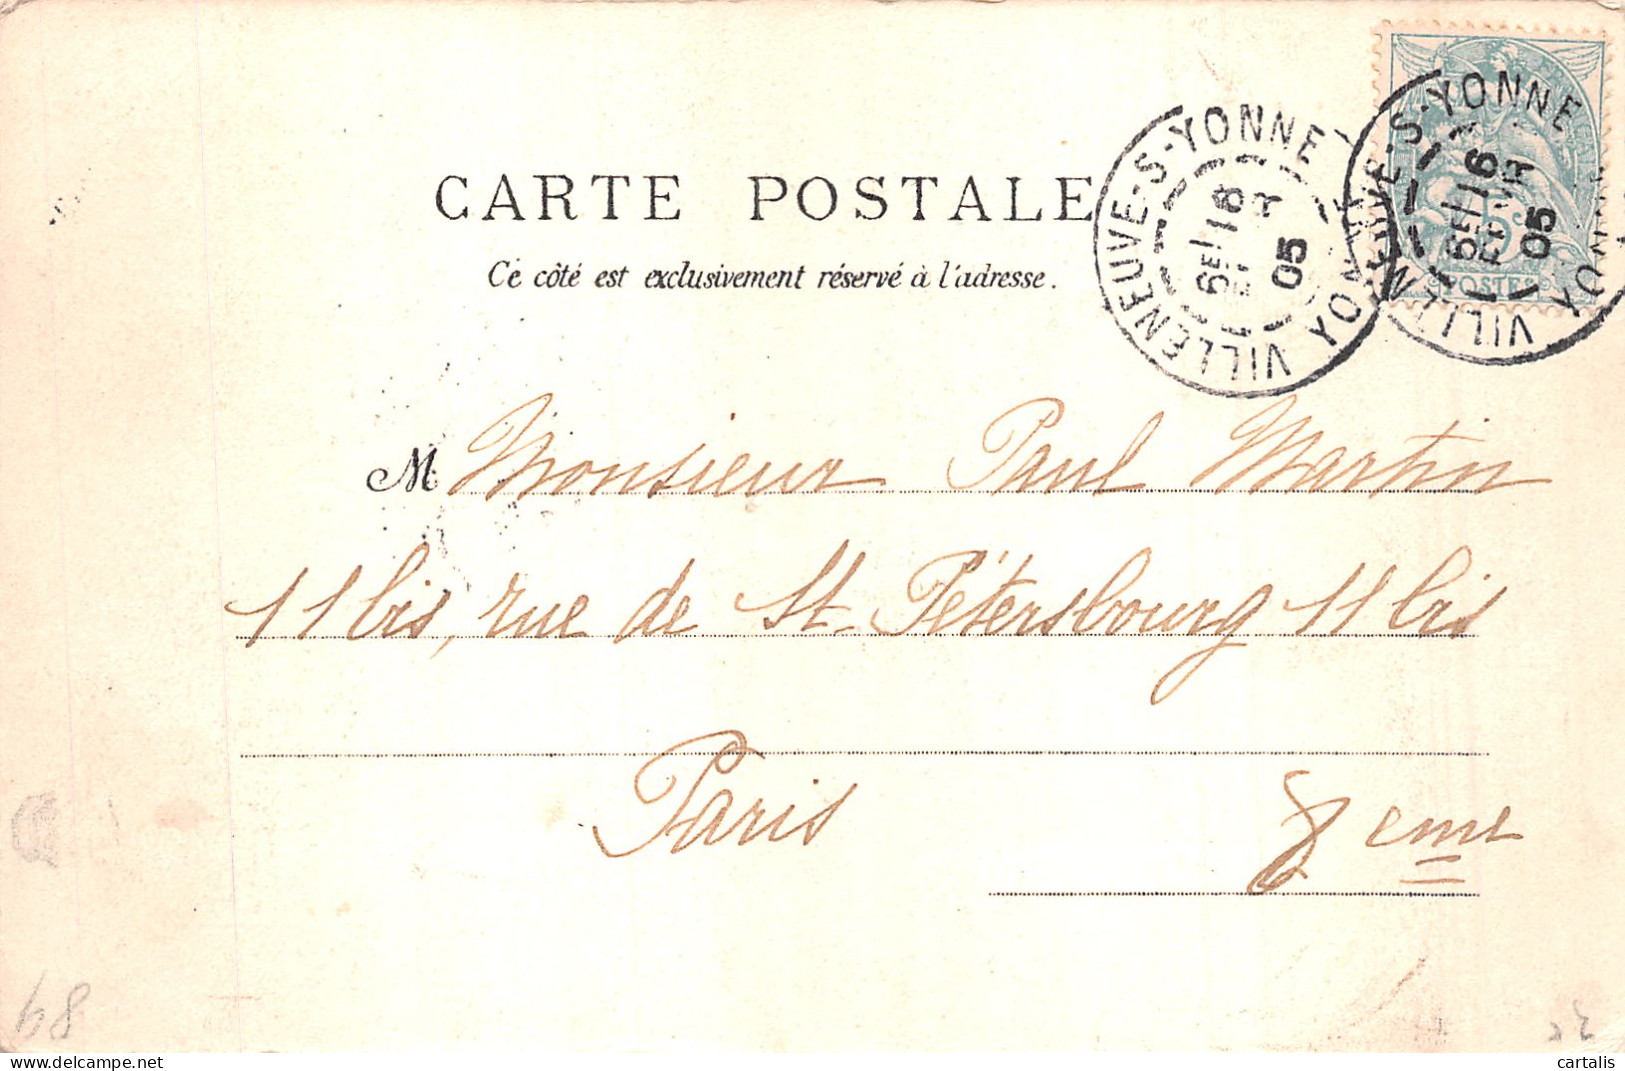 CARTE POSTALE
Ce côté est exclusivement réservé à l'adresse.
VILLENEUVE-S-YONNE YONNE
6E/16
05
VILLENEUVE-S-YONNE
6E/16
FEVR
05
POSTES
M Monsieur Paul Martin
11 bis, rue de St-Pétersbourg 11 bis
Paris 8eme
68
delcampe.net
cartalis